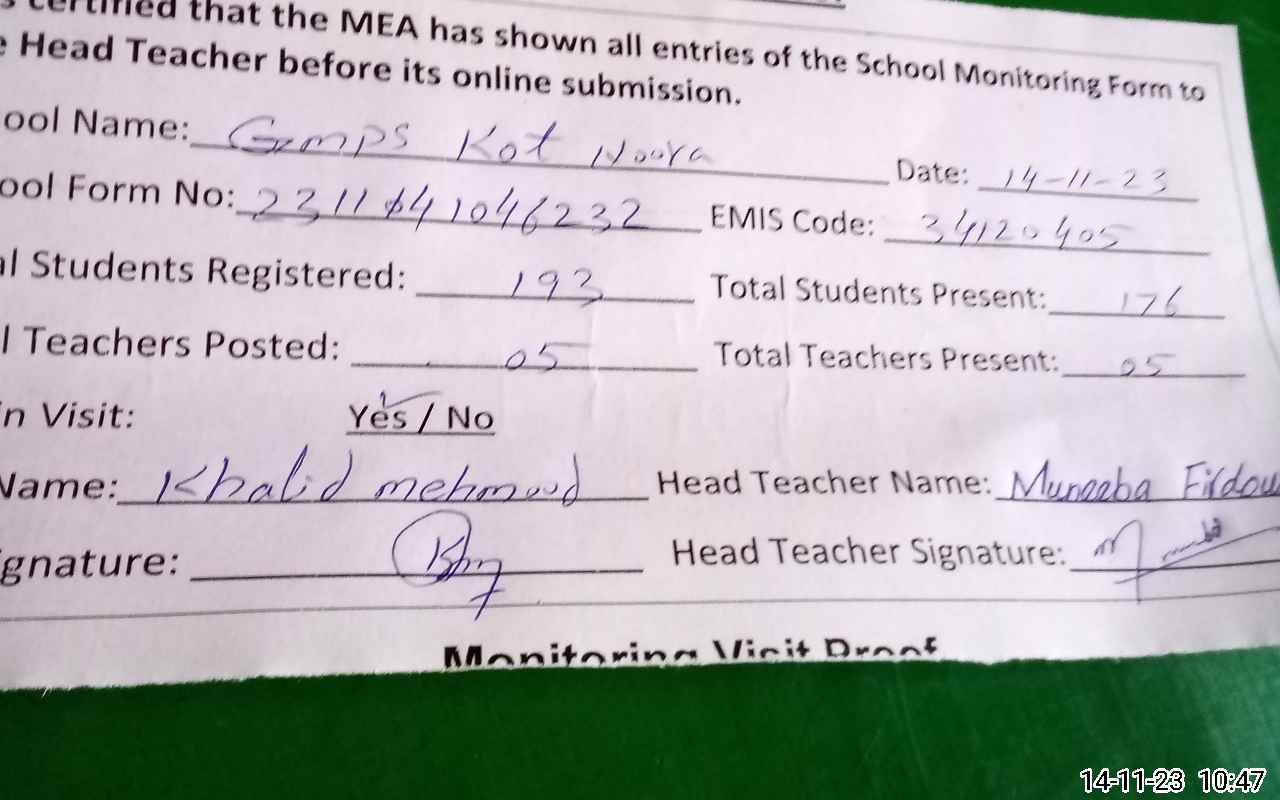 certified that the MEA has shown all entries of the School Monitoring Form to
Head Teacher before its online submission.
ool Name: Gmps Kot Noora Date: 14-11-23
ool Form No: 2311641046232 EMIS Code: 34120405
al Students Registered: 193 Total Students Present: 176
l Teachers Posted: 05 Total Teachers Present: 05
in Visit: Yes / No
Name: Khalid mehmood Head Teacher Name: Muneeba Firdou
gnature: Head Teacher Signature:
Monitoring Visit Proof
14-11-23 10:47